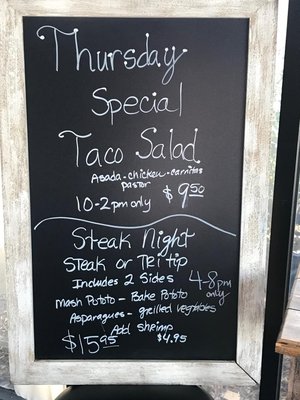 Thursday
Special
Taco Salad
Asada-chicken-carnitas
pastor
10-2pm only $9.50
Steak Night
Steak or Tri tip
Includes 2 Sides 4-8pm
only
Mash Pototo - Bake Pototo
Asparagues - grilled vegetables
Add shrimp
$15.95 $4.95